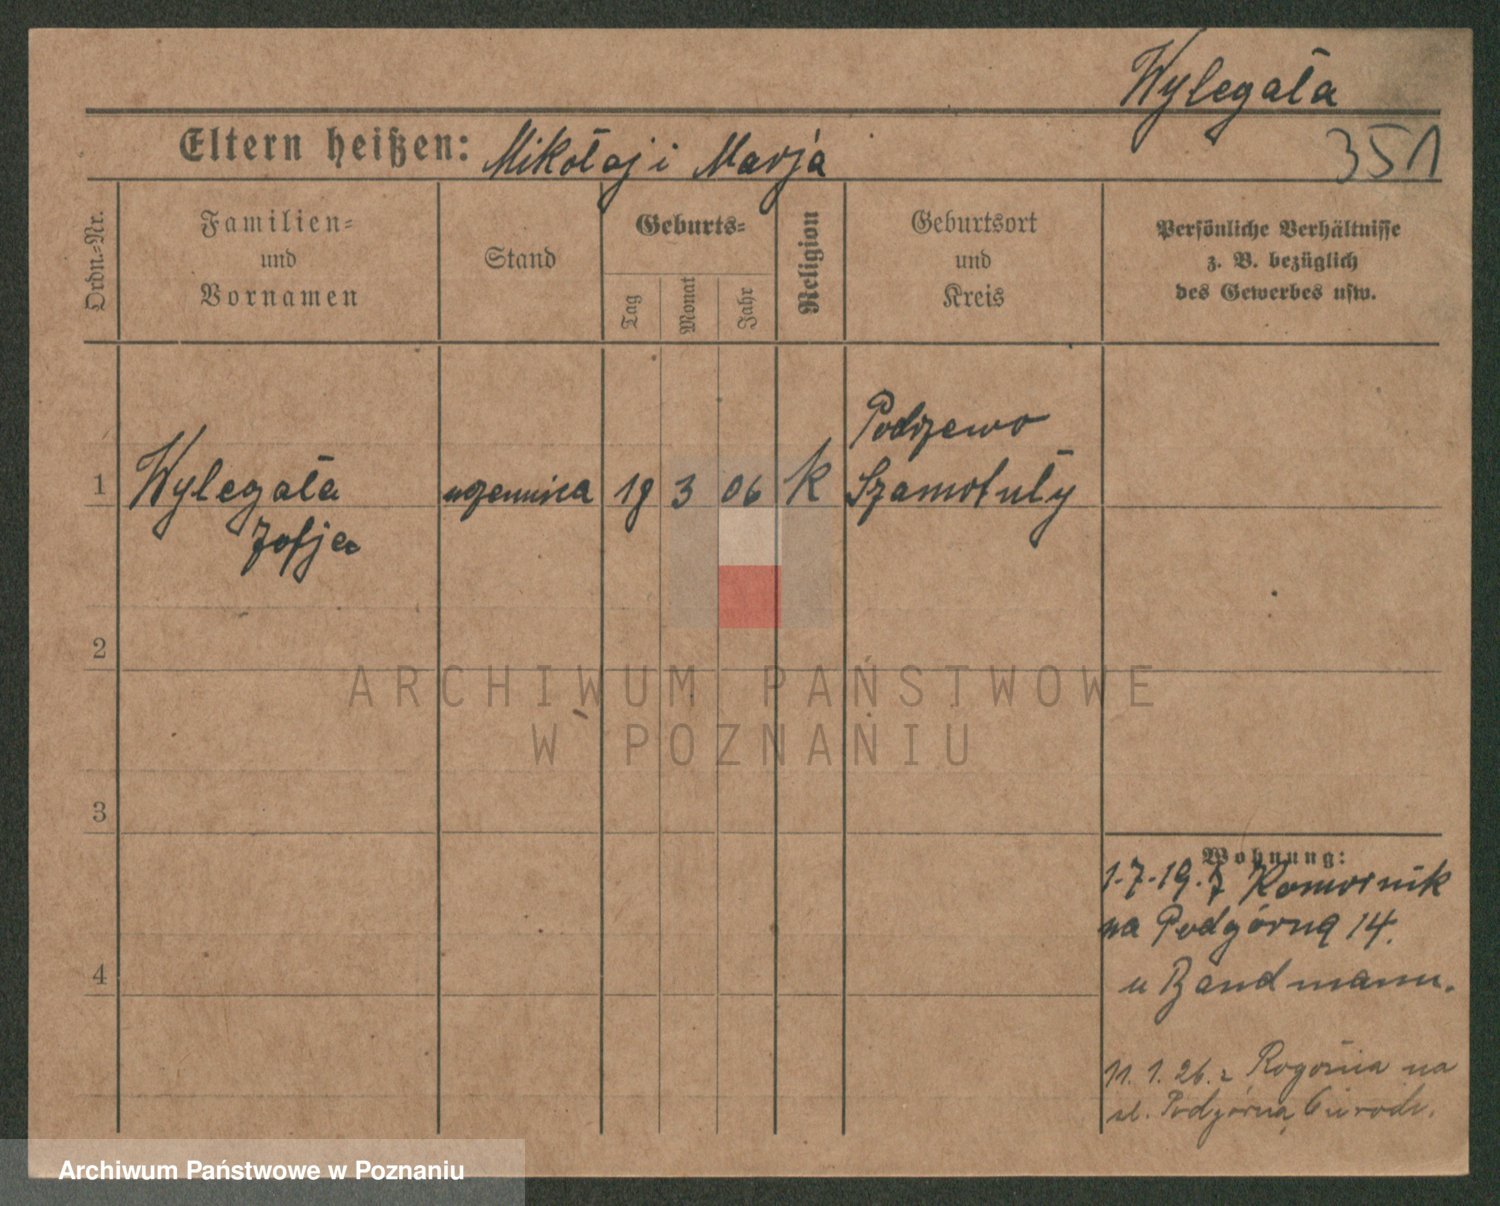 Wylegała
351
Eltern heißen: Mikołaj i Marja
Ordn.-Nr.
Familien-
und
Vornamen
Stand
Geburts-
Tag
Monat
Jahr
Religion
Geburtsort
und
Kreis
Persönliche Verhältnisse
z. B. bezüglich
des Gewerbes usw.
Podrzewo
1 Wylegała uczennica 18 3 06 k Szamotuły
Zofja
2
3
4
Wohnung:
1.-7.-19. z Komornik
na Podgórną 14.
u Bandmann.
11. 1. 26. z Rogoźna na
ul. Podgórną 6
ARCHIWUM PAŃSTWOWE
W POZNANIU
Archiwum Państwowe w Poznaniu